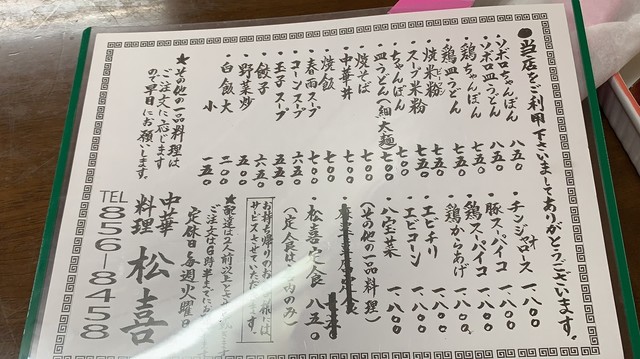 ●当店をご利用下さいましてありがとうございます。
・ソボロちゃんぽん 八五〇
・ソボロ皿うどん 八五〇
・鶏ちゃんぽん 七五〇
・鶏皿うどん 七五〇
・焼米粉 七五〇
・スープ米粉 七五〇
・ちゃんぽん 七〇〇
・皿うどん(細太麺) 七〇〇
・焼そば 七〇〇
・中華丼 七〇〇
・焼飯 七〇〇
・春雨スープ 七〇〇
・コーンスープ 六五〇
・玉子スープ 五五〇
・餃子 六五〇
・野菜炒 五五〇
・白飯 大 二〇〇
小 一五〇
★その他の一品料理は
ご注文に応じます
ので早目にお願いします。
・チンジャオロース 一、八〇〇
・豚スパイコ 一、八〇〇
・鶏スパイコ 一、八〇〇
・鶏からあげ 一、八〇〇
・エビチリ 一、八〇〇
・エビコーン 一、八〇〇
・八宝菜 一、八〇〇
(その他の一品料理)
・松喜定食 八五〇
(定食は 内のみ)
お持ち帰りのお 様は
サービスさせていただ ます。
★配達は2人前以上とさ
ご注文は8時半までにお
定休日毎週火曜日
中華料理 松喜
TEL 856-8458